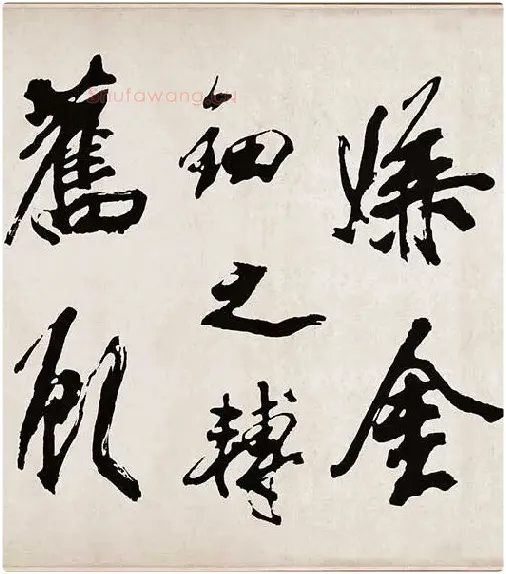 嫌金
鈿之轉
舊顧
Shufawang.cn